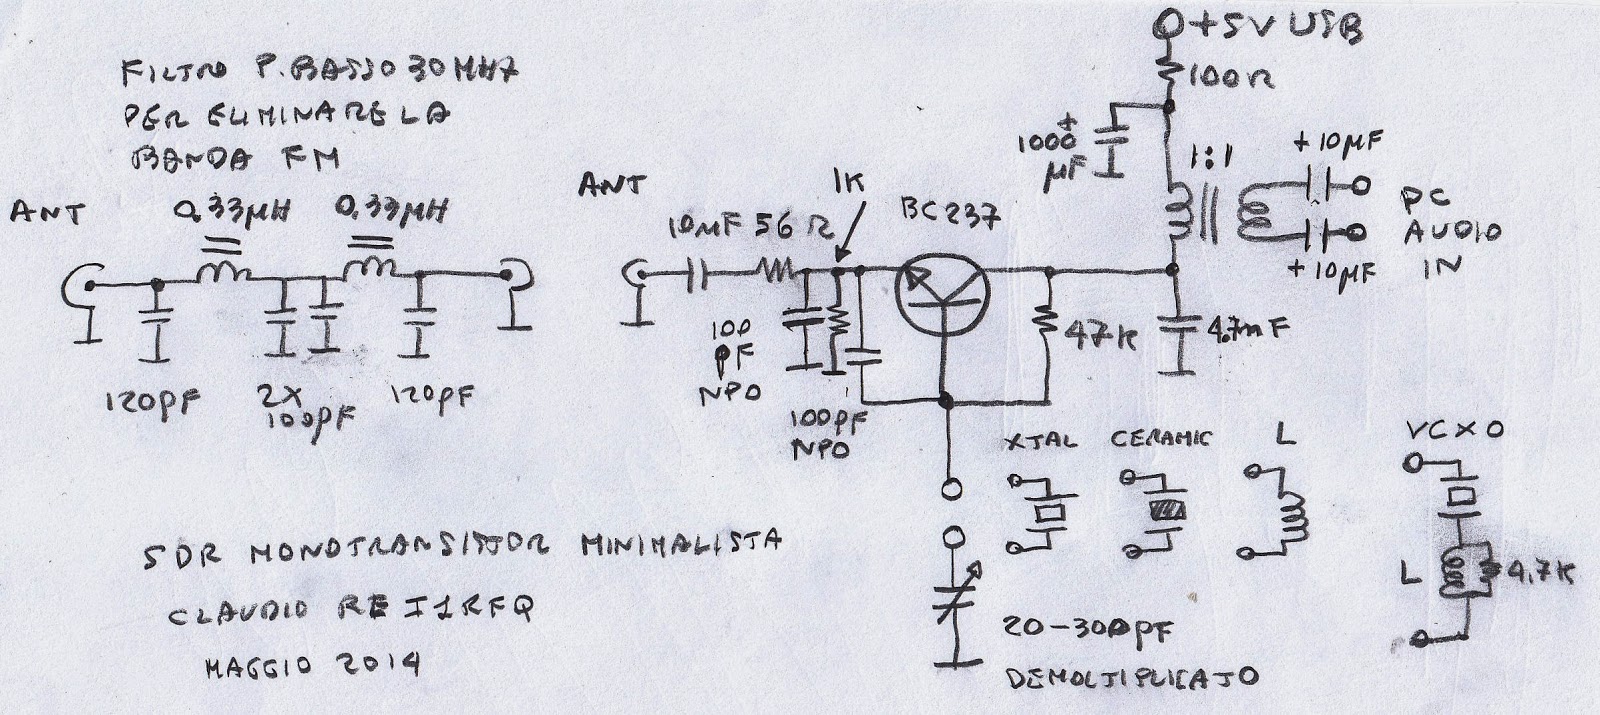 FILTRO P. BASSO 30 MHZ
PER ELIMINARE LA
BANDA FM
ANT
0,33µH
0,33µH
120pF
2X
100pF
120pF
ANT
10nF
56Ω
1K
BC237
100
pF
NPO
100pF
NPO
47K
+5V USB
100Ω
1000
µF
+
1:1
+10µF
+10µF
PC
AUDIO
IN
4.7nF
XTAL
CERAMIC
L
VCXO
L
4.7K
20-300pF
DEMOLTIPLICATO
SDR MONOTRANSISTOR MINIMALISTA
CLAUDIO RE I1RFQ
MAGGIO 2014